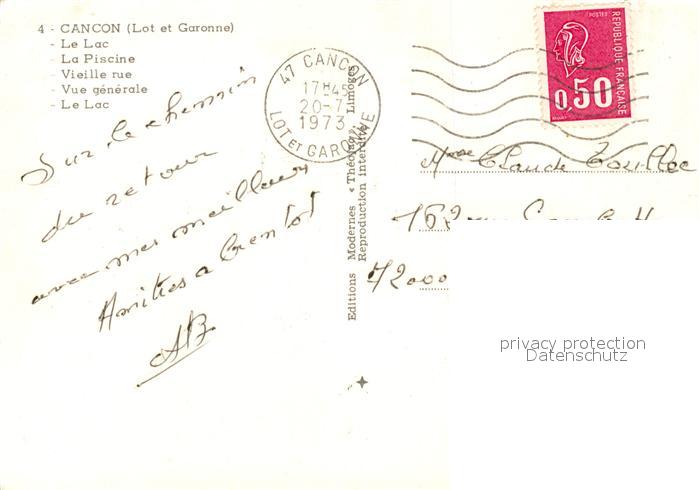 4 - CANCON (Lot et Garonne)
- Le Lac
- La Piscine
- Vieille rue
- Vue générale
- Le Lac
47 CANCON
17H45
20-7
1973
LOT et GARONNE
POSTES
REPUBLIQUE FRANÇAISE
0,50
Sur le chemin
du retour
avec mes meilleurs
Amitiés a bientot
AB
Editions Modernes « Théojac » Limoges
Reproduction Interdite
Mme Claude
72000
privacy protection
Datenschutz